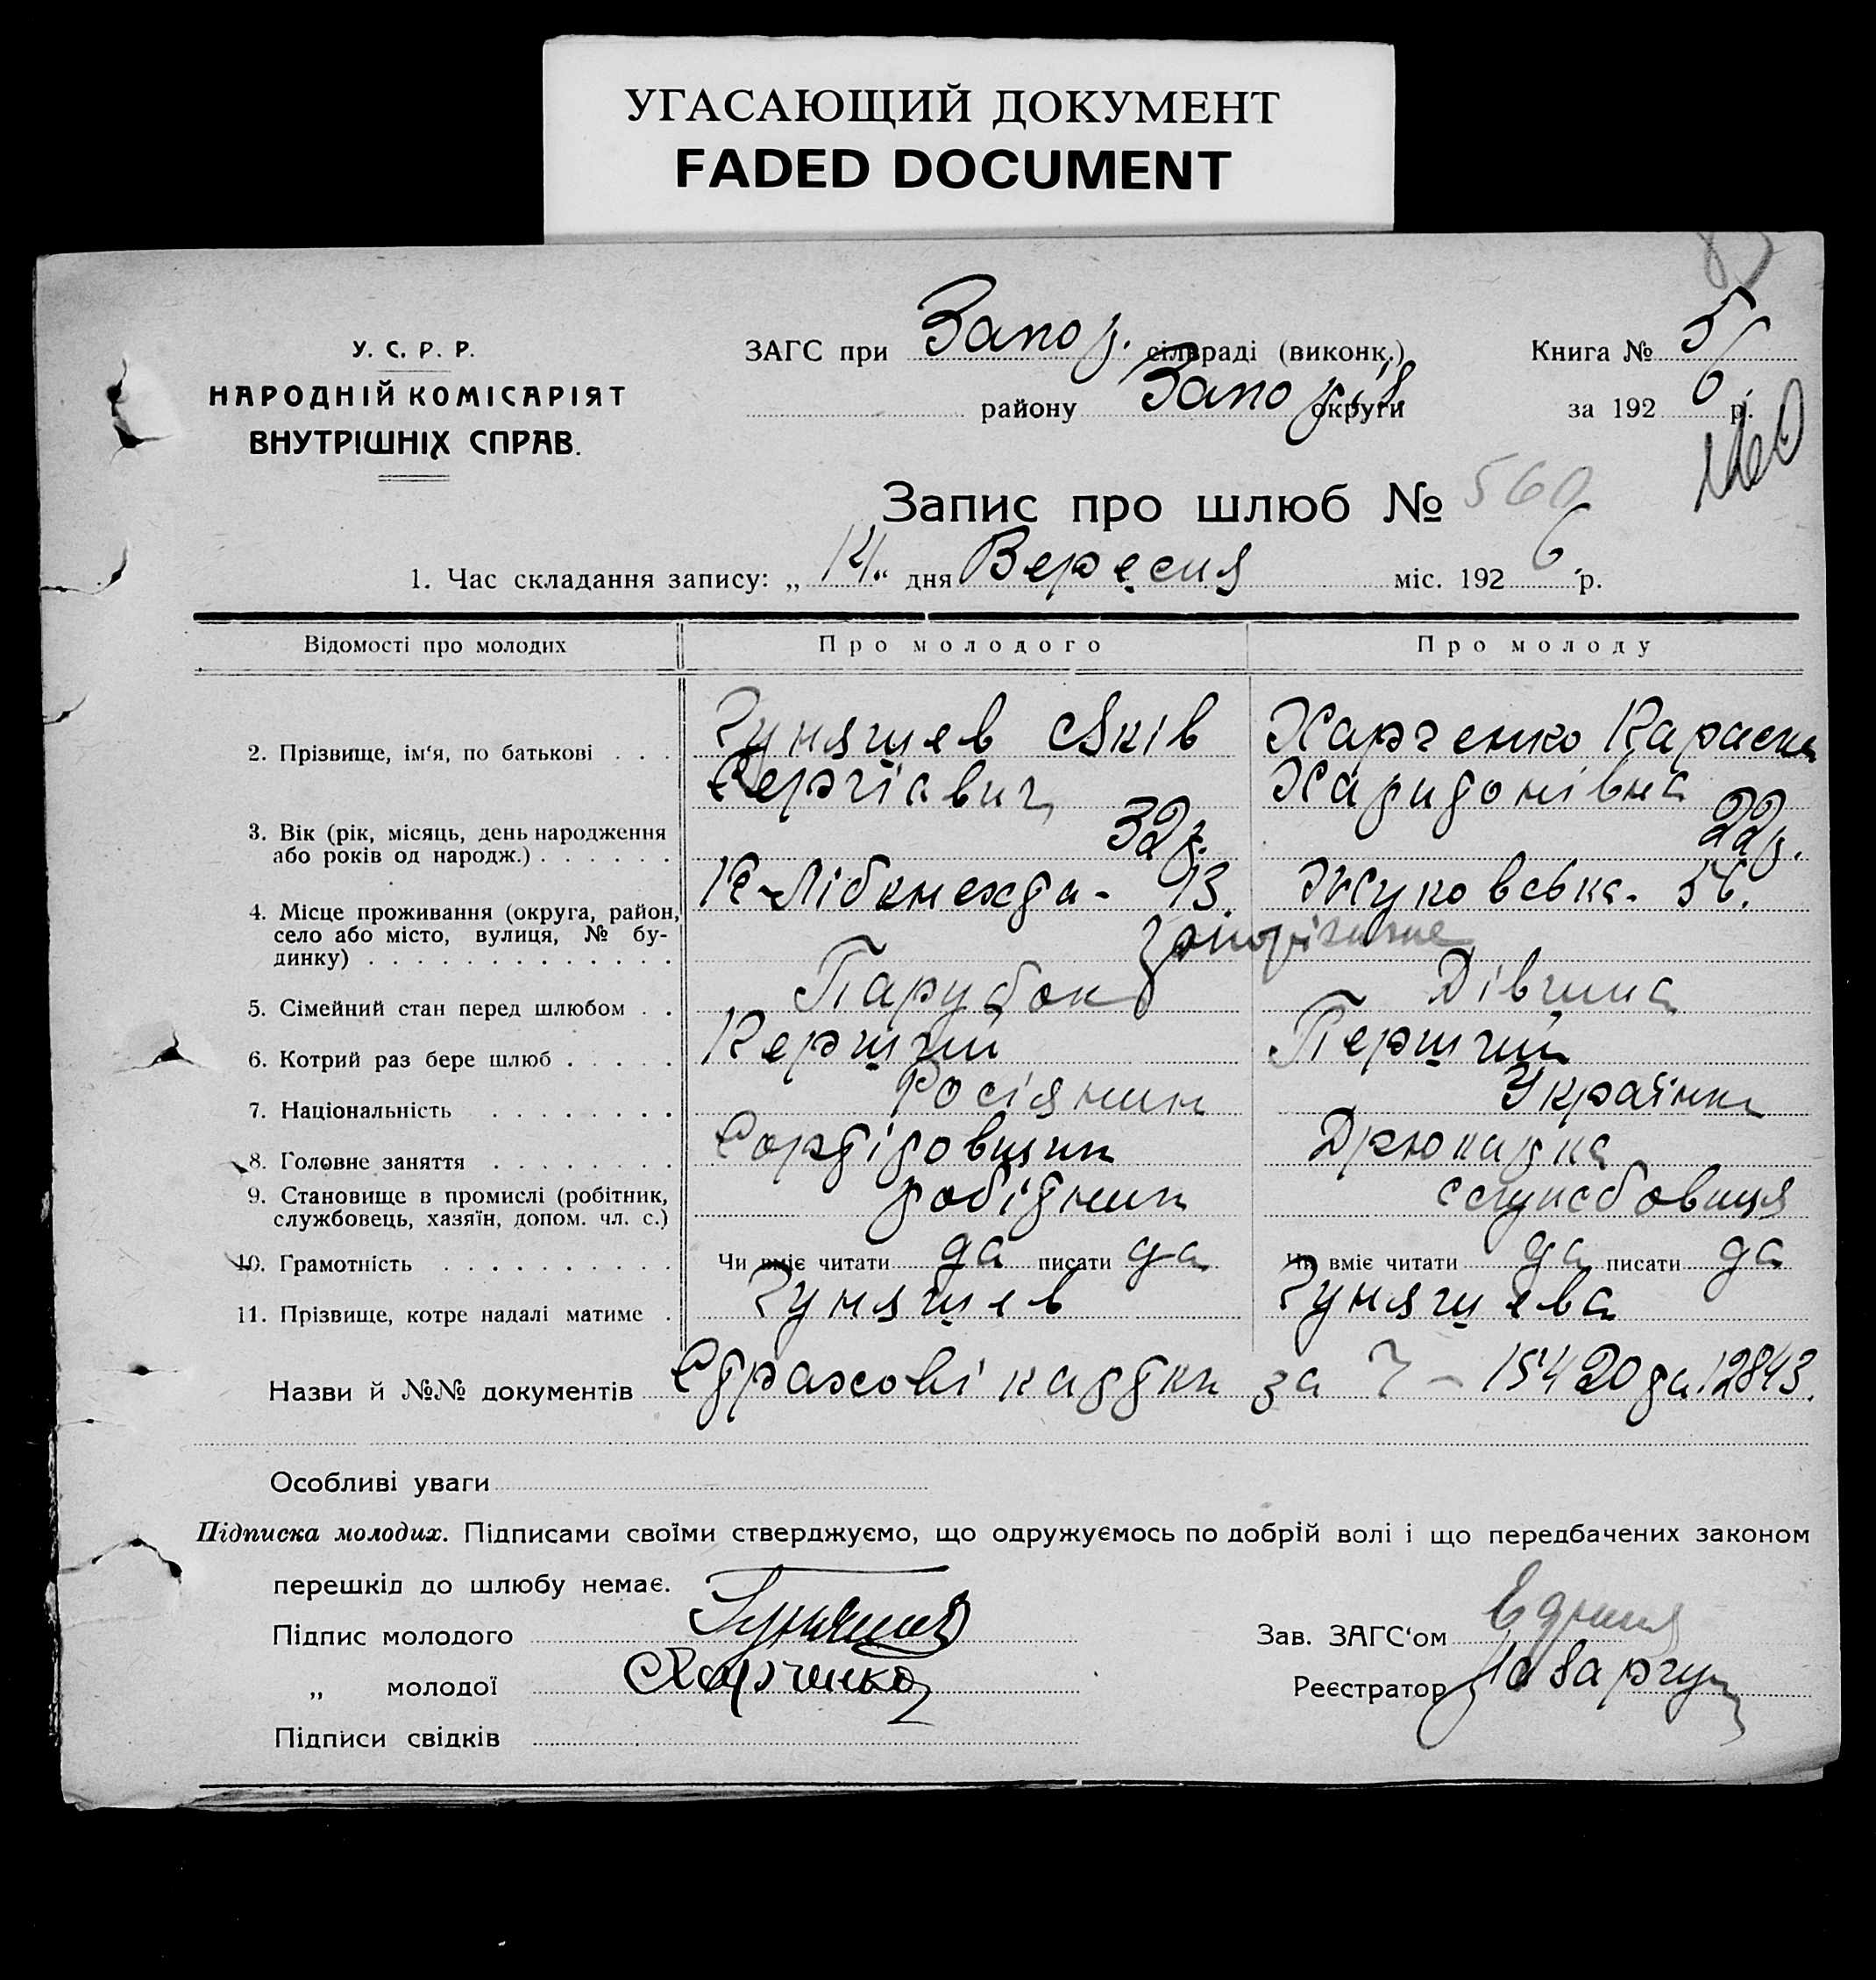 УГАСАЮЩИЙ ДОКУМЕНТ
FADED DOCUMENT
У. С. Р. Р.
НАРОДНІЙ КОМІСАРІЯТ
ВНУТРІШНІХ СПРАВ.
ЗАГС при Запор. сільраді (виконк.)
району Запоріз. округи
Книга № 5
за 1926 р.
Запис про шлюб № 560
1. Час складання запису: „14“ дня Вересня міс. 1926 р.
Відомості про молодих Про молодого Про молоду
2. Прізвище, ім‘я, по батькові . . . Гуняшев Яків Харченко Параска
Сергієвич Харитонівна
3. Вік (рік, місяць, день народження 32 р. 22 р.
або років од народж.) . . . . . .
4. Місце проживання (округа, район, К-Лібкнехта - 93. Жуковська - 56.
село або місто, вулиця, № бу- Запоріжже
динку) . . . . . . . . . . . . .
5. Сімейний стан перед шлюбом . . Парубок Дівчина
6. Котрий раз бере шлюб . . . . . Перший Перший
7. Національність . . . . . . . . Росіянин Українка
8. Головне заняття . . . . . . . . Сортіровщик Друкарка
9. Становище в промислі (робітник, робітник службовиця
службовець, хазяїн, допом. чл. с.)
10. Грамотність . . . . . . . . . . Чи вміє читати да писати да Чи вміє читати да писати да
11. Прізвище, котре надалі матиме . Гуняшев Гуняшева
Назви й №№ документів Страхові картки за № - 15420 та 12843.
Особливі уваги
Підписка молодих. Підписами своїми стверджуємо, що одружуємось по добрій волі і що передбачених законом
перешкід до шлюбу немає.
Підпис молодого Гуняшев
Зав. ЗАГС‘ом
„ молодої Харченко
Реєстратор
Підписи свідків